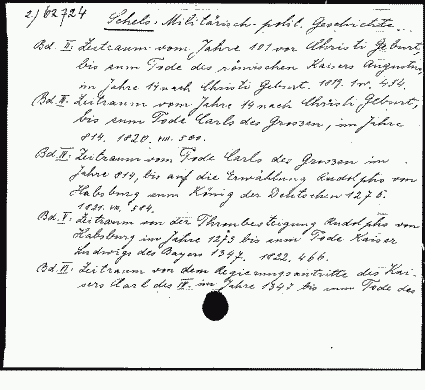 2) 62724
Schels: Militärisch-polit. Geschichte...
Bd. II: Zeitraum vom Jahre 101 vor Christi Geburt,
bis zum Tode des römischen Kaisers Augustus,
im Jahre 14 nach Christi Geburt. 1819. 454.
Bd. III: Zeitraum vom Jahre 14 nach Christi Geburt,
bis zum Tode Carls des Grossen, im Jahre
814. 1820. VIII. 580.
Bd. IV: Zeitraum vom Tode Carls des Grossen im
Jahre 814, bis auf die Erwählung Rudolphs von
Habsburg zum König der Deutschen 1273.
1821. VIII. 584.
Bd. V: Zeitraum von der Thronbesteigung Rudolphs von
Habsburg im Jahre 1273 bis zum Tode Kaiser
Ludwigs des Bayers 1347. 1822. 466.
Bd. VI: Zeitraum vor dem Regierungsantritte des Kai-
sers Carl des IV. im Jahre 1347 bis zum Tode des